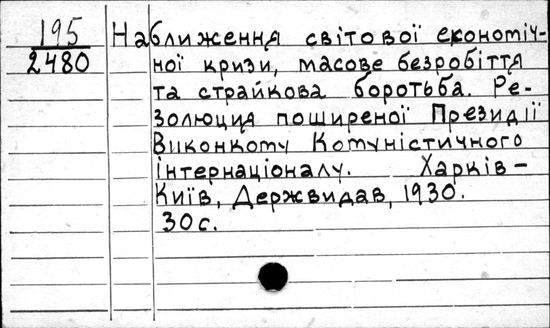 195
2480
Наближення світової економіч-
ної кризи, масове безробіття
та страйкова боротьба. Ре-
золюция поширеної Президії
Виконкому Комуністичного
інтернаціоналу. Харків –
Київ, Держвидав, 1930.
30 с.